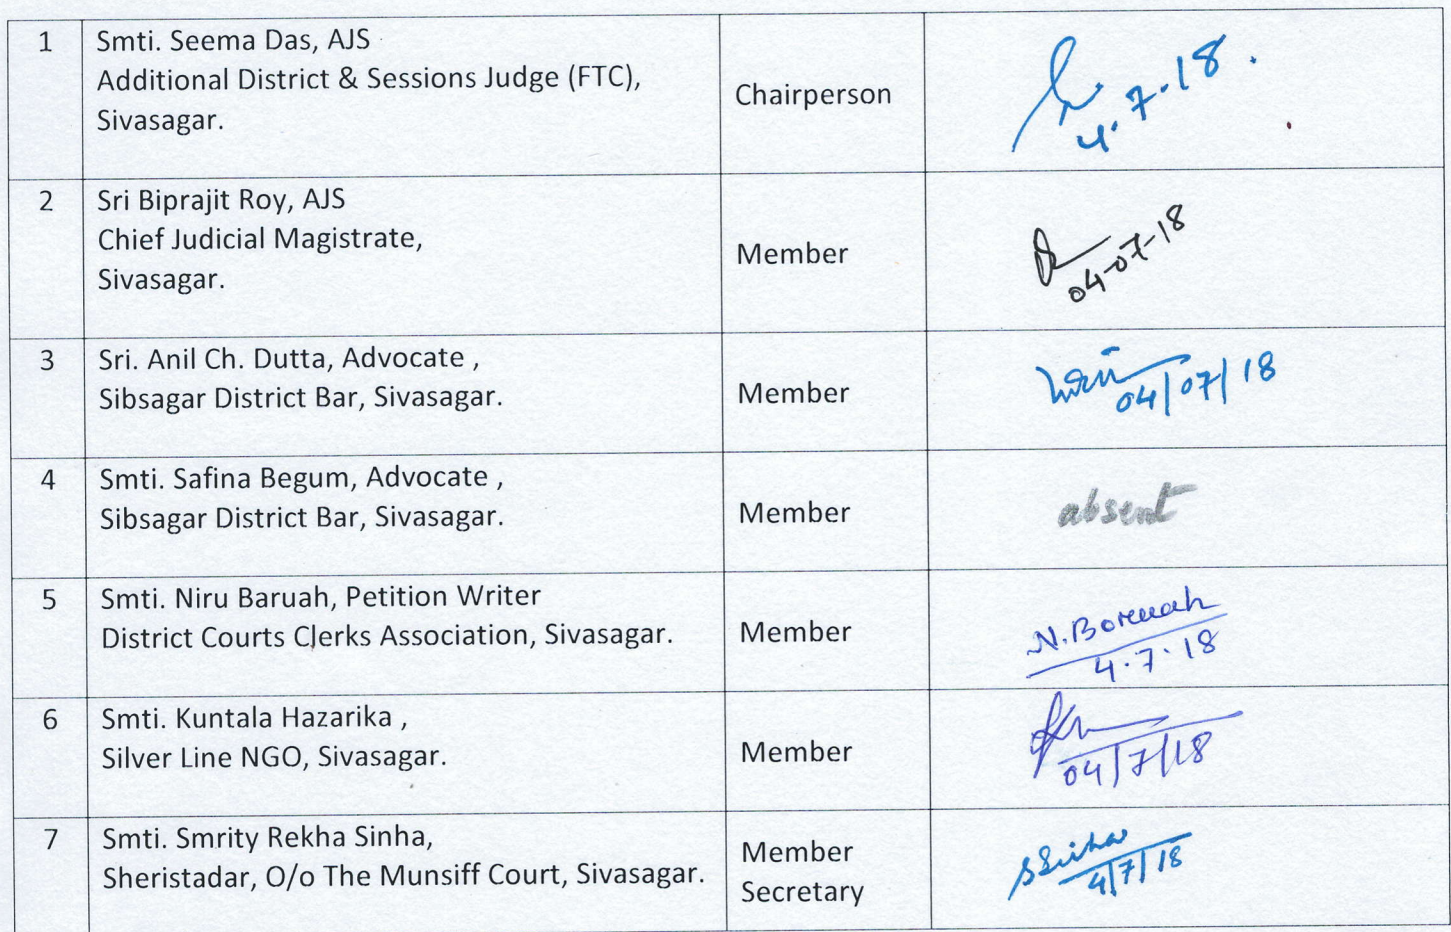 1
Smti. Seema Das, AJS
Additional District & Sessions Judge (FTC),
Sivasagar.
Chairperson
4.7.18.
2
Sri Biprajit Roy, AJS
Chief Judicial Magistrate,
Sivasagar.
Member
04-07-18
3
Sri. Anil Ch. Dutta, Advocate ,
Sibsagar District Bar, Sivasagar.
Member
04/07/18
4
Smti. Safina Begum, Advocate ,
Sibsagar District Bar, Sivasagar.
Member
absent
5
Smti. Niru Baruah, Petition Writer
District Courts Clerks Association, Sivasagar.
Member
N. Boruah
4.7.18
6
Smti. Kuntala Hazarika ,
Silver Line NGO, Sivasagar.
Member
04/7/18
7
Smti. Smrity Rekha Sinha,
Sheristadar, O/o The Munsiff Court, Sivasagar.
Member
Secretary
SSinha
4/7/18